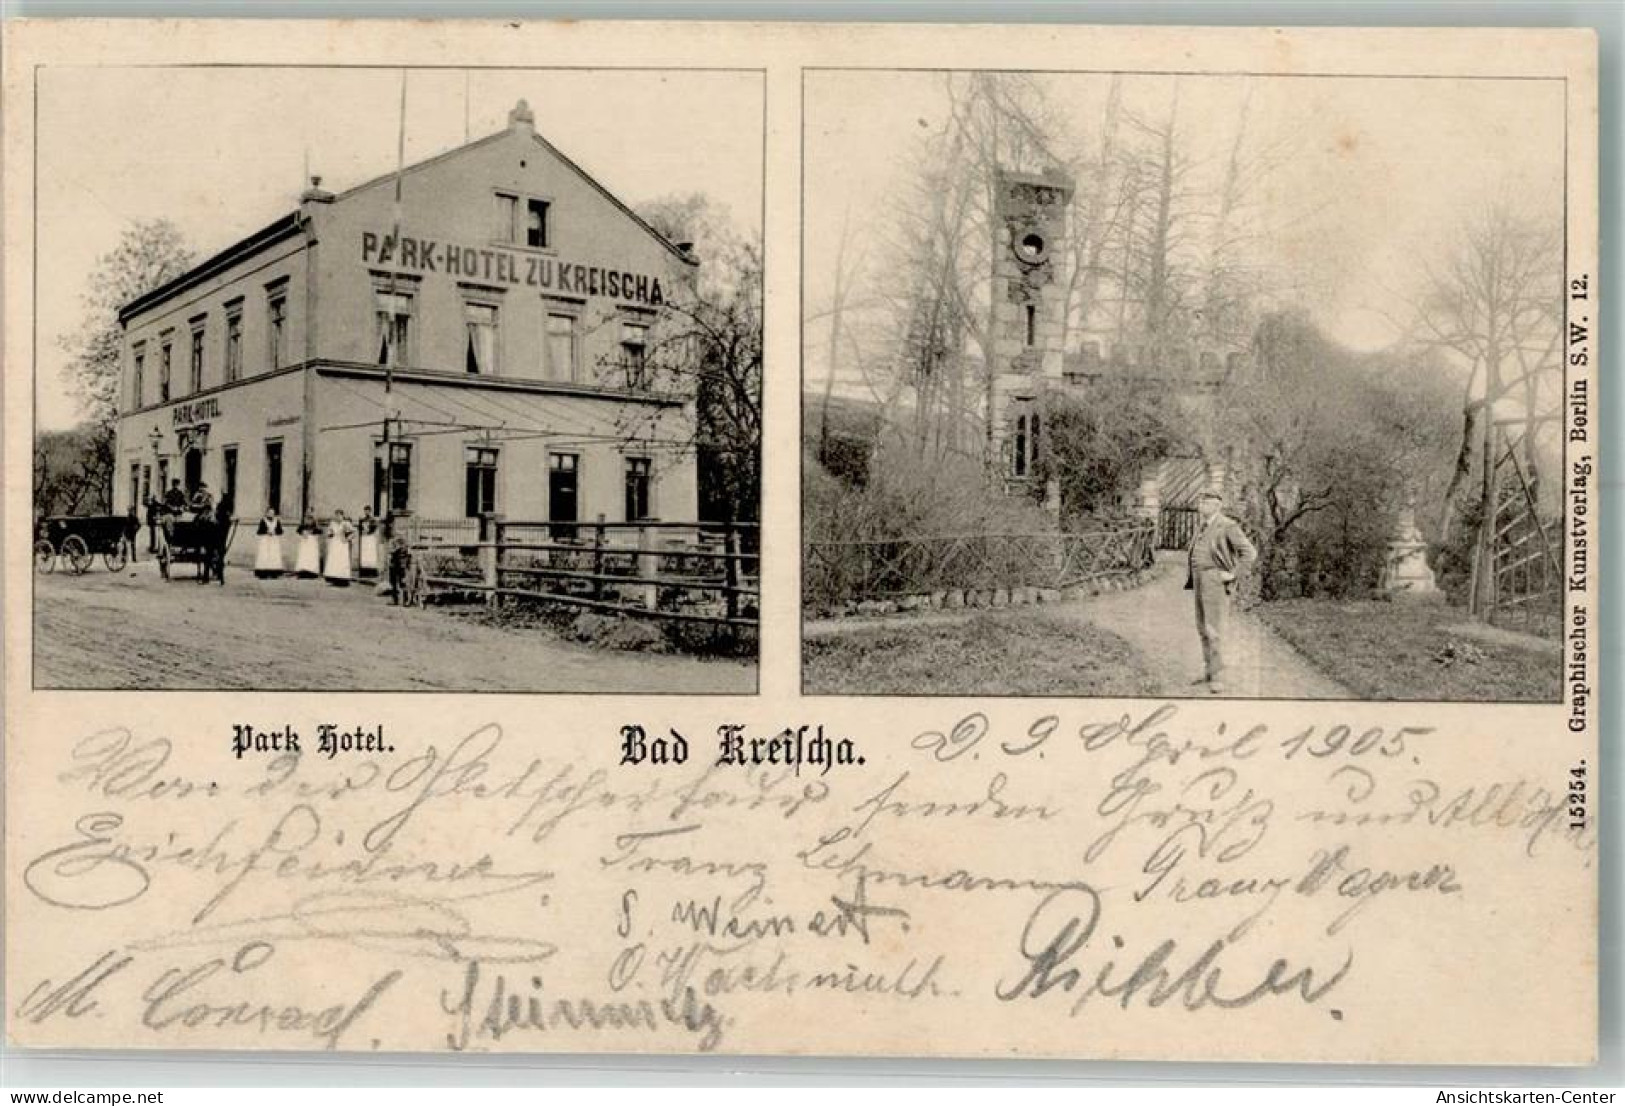 PARK-HOTEL ZU KREISCHA.
PARK-HOTEL.
Park Hotel.
Bad Kreiſcha.
D. 9. April 1905.
Von der senden Gruß und All Heil
Erich Feidner Franz Lehmann Franz Wagner
S. Weinert.
O. Wachsmuth. Richter.
M. Conrad. Steinmetz.
15254. Graphischer Kunstverlag, Berlin S.W. 12.
oldthing.de
Ansichtskarten-Center